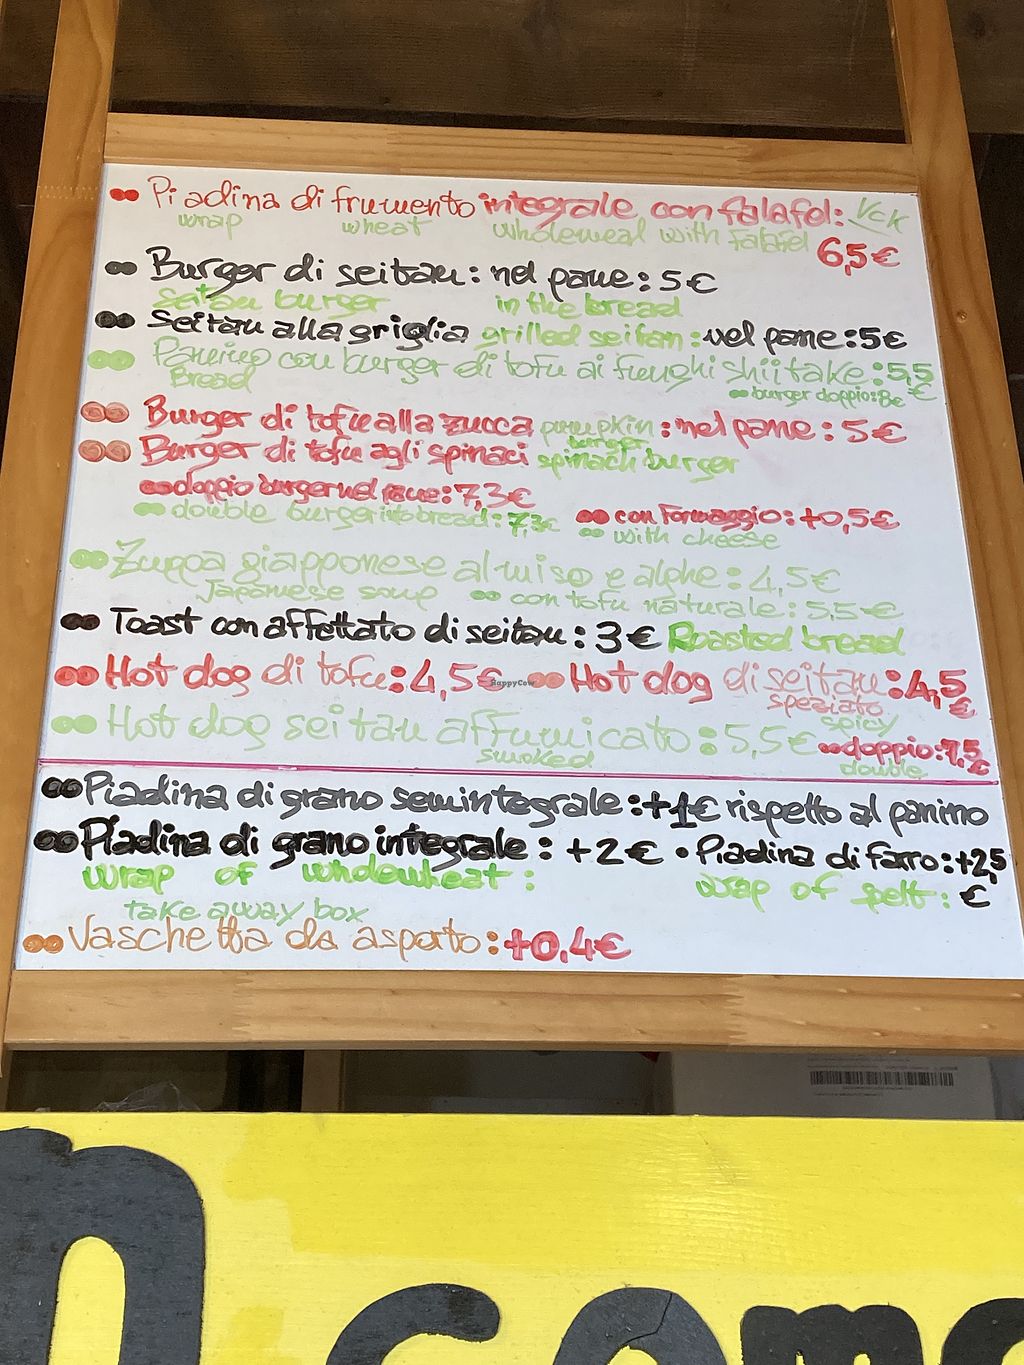 Piadina di frumento integrale con falafel: Vck
wrap wheat wholemeal with falafel 6,5€
Burger di seitan: nel pane: 5€
Seitan burger in the bread
Seitan alla griglia grilled seitan: nel pane: 5€
Panino con burger di tofu ai funghi shiitake: 5,5 €
Bread burger doppio: 8€
Burger di tofu alla zucca pumpkin burger: nel pane: 5€
Burger di tofu agli spinaci spinach burger
doppio burger nel pane: 7,3€
double burger into bread: 7,3€ con formaggio: +0,5€
with cheese
Zuppa giapponese al miso e alghe: 4,5€
Japanese soup con tofu naturale: 5,5€
Toast con affettato di seitan: 3€ Roasted bread
Hot dog di tofu: 4,5€ Hot dog di seitan: 4,5 €
HappyCow
speziato
spicy
Hot dog seitan affumicato: 5,5€ doppio: 7,5 €
smoked double
Piadina di grano semintegrale: +1€ rispetto al panino
Piadina di grano integrale: +2€ • Piadina di farro: +2,5 €
wrap of wholewheat: wrap of spelt:
take away box
Vaschetta da asporto: +0,4€
n come